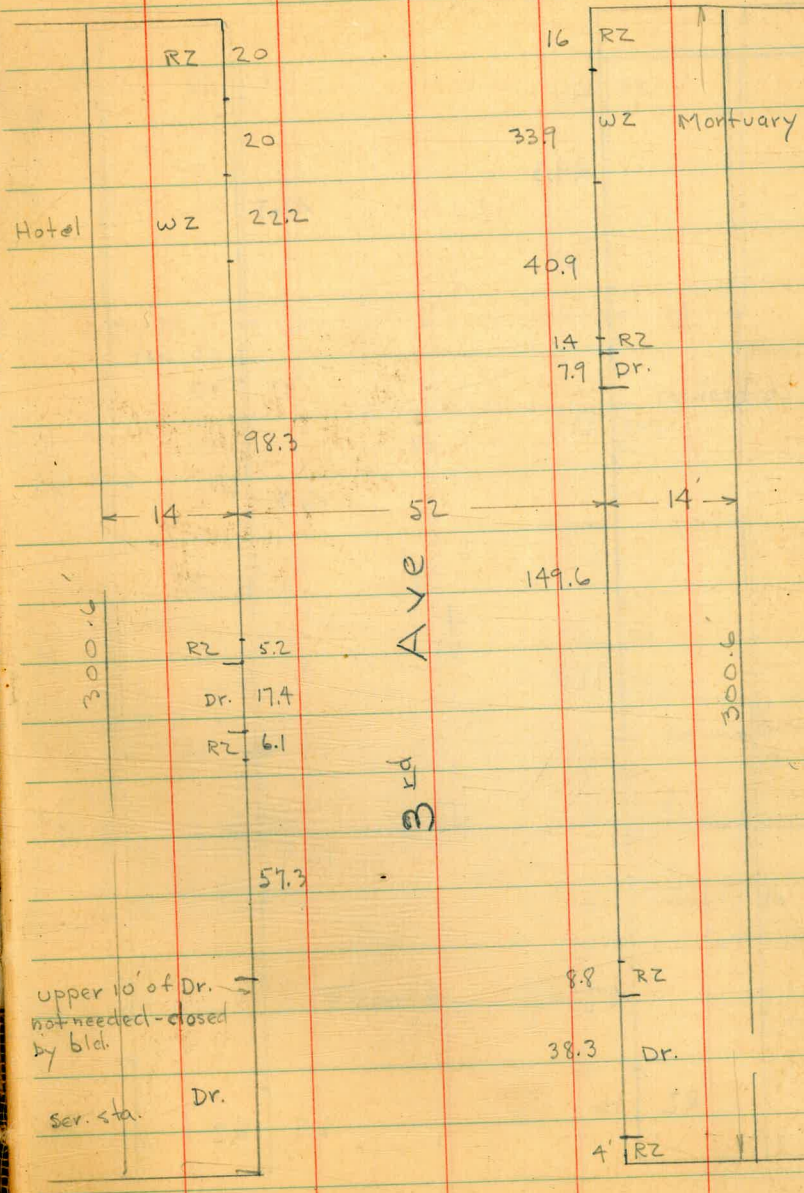 RZ 20
20
Hotel WZ 22.2
98.3
14
300.6'
RZ 5.2
Dr. 17.4
RZ 6.1
57.3
upper 10' of Dr.
not needed - closed
by bld.
Dr.
Ser. sta.
52
3rd Ave
16 RZ
33.9 WZ Mortuary
40.9
1.4 RZ
7.9 Dr.
14'
149.6
300.6'
8.8 RZ
38.3 Dr.
4' RZ